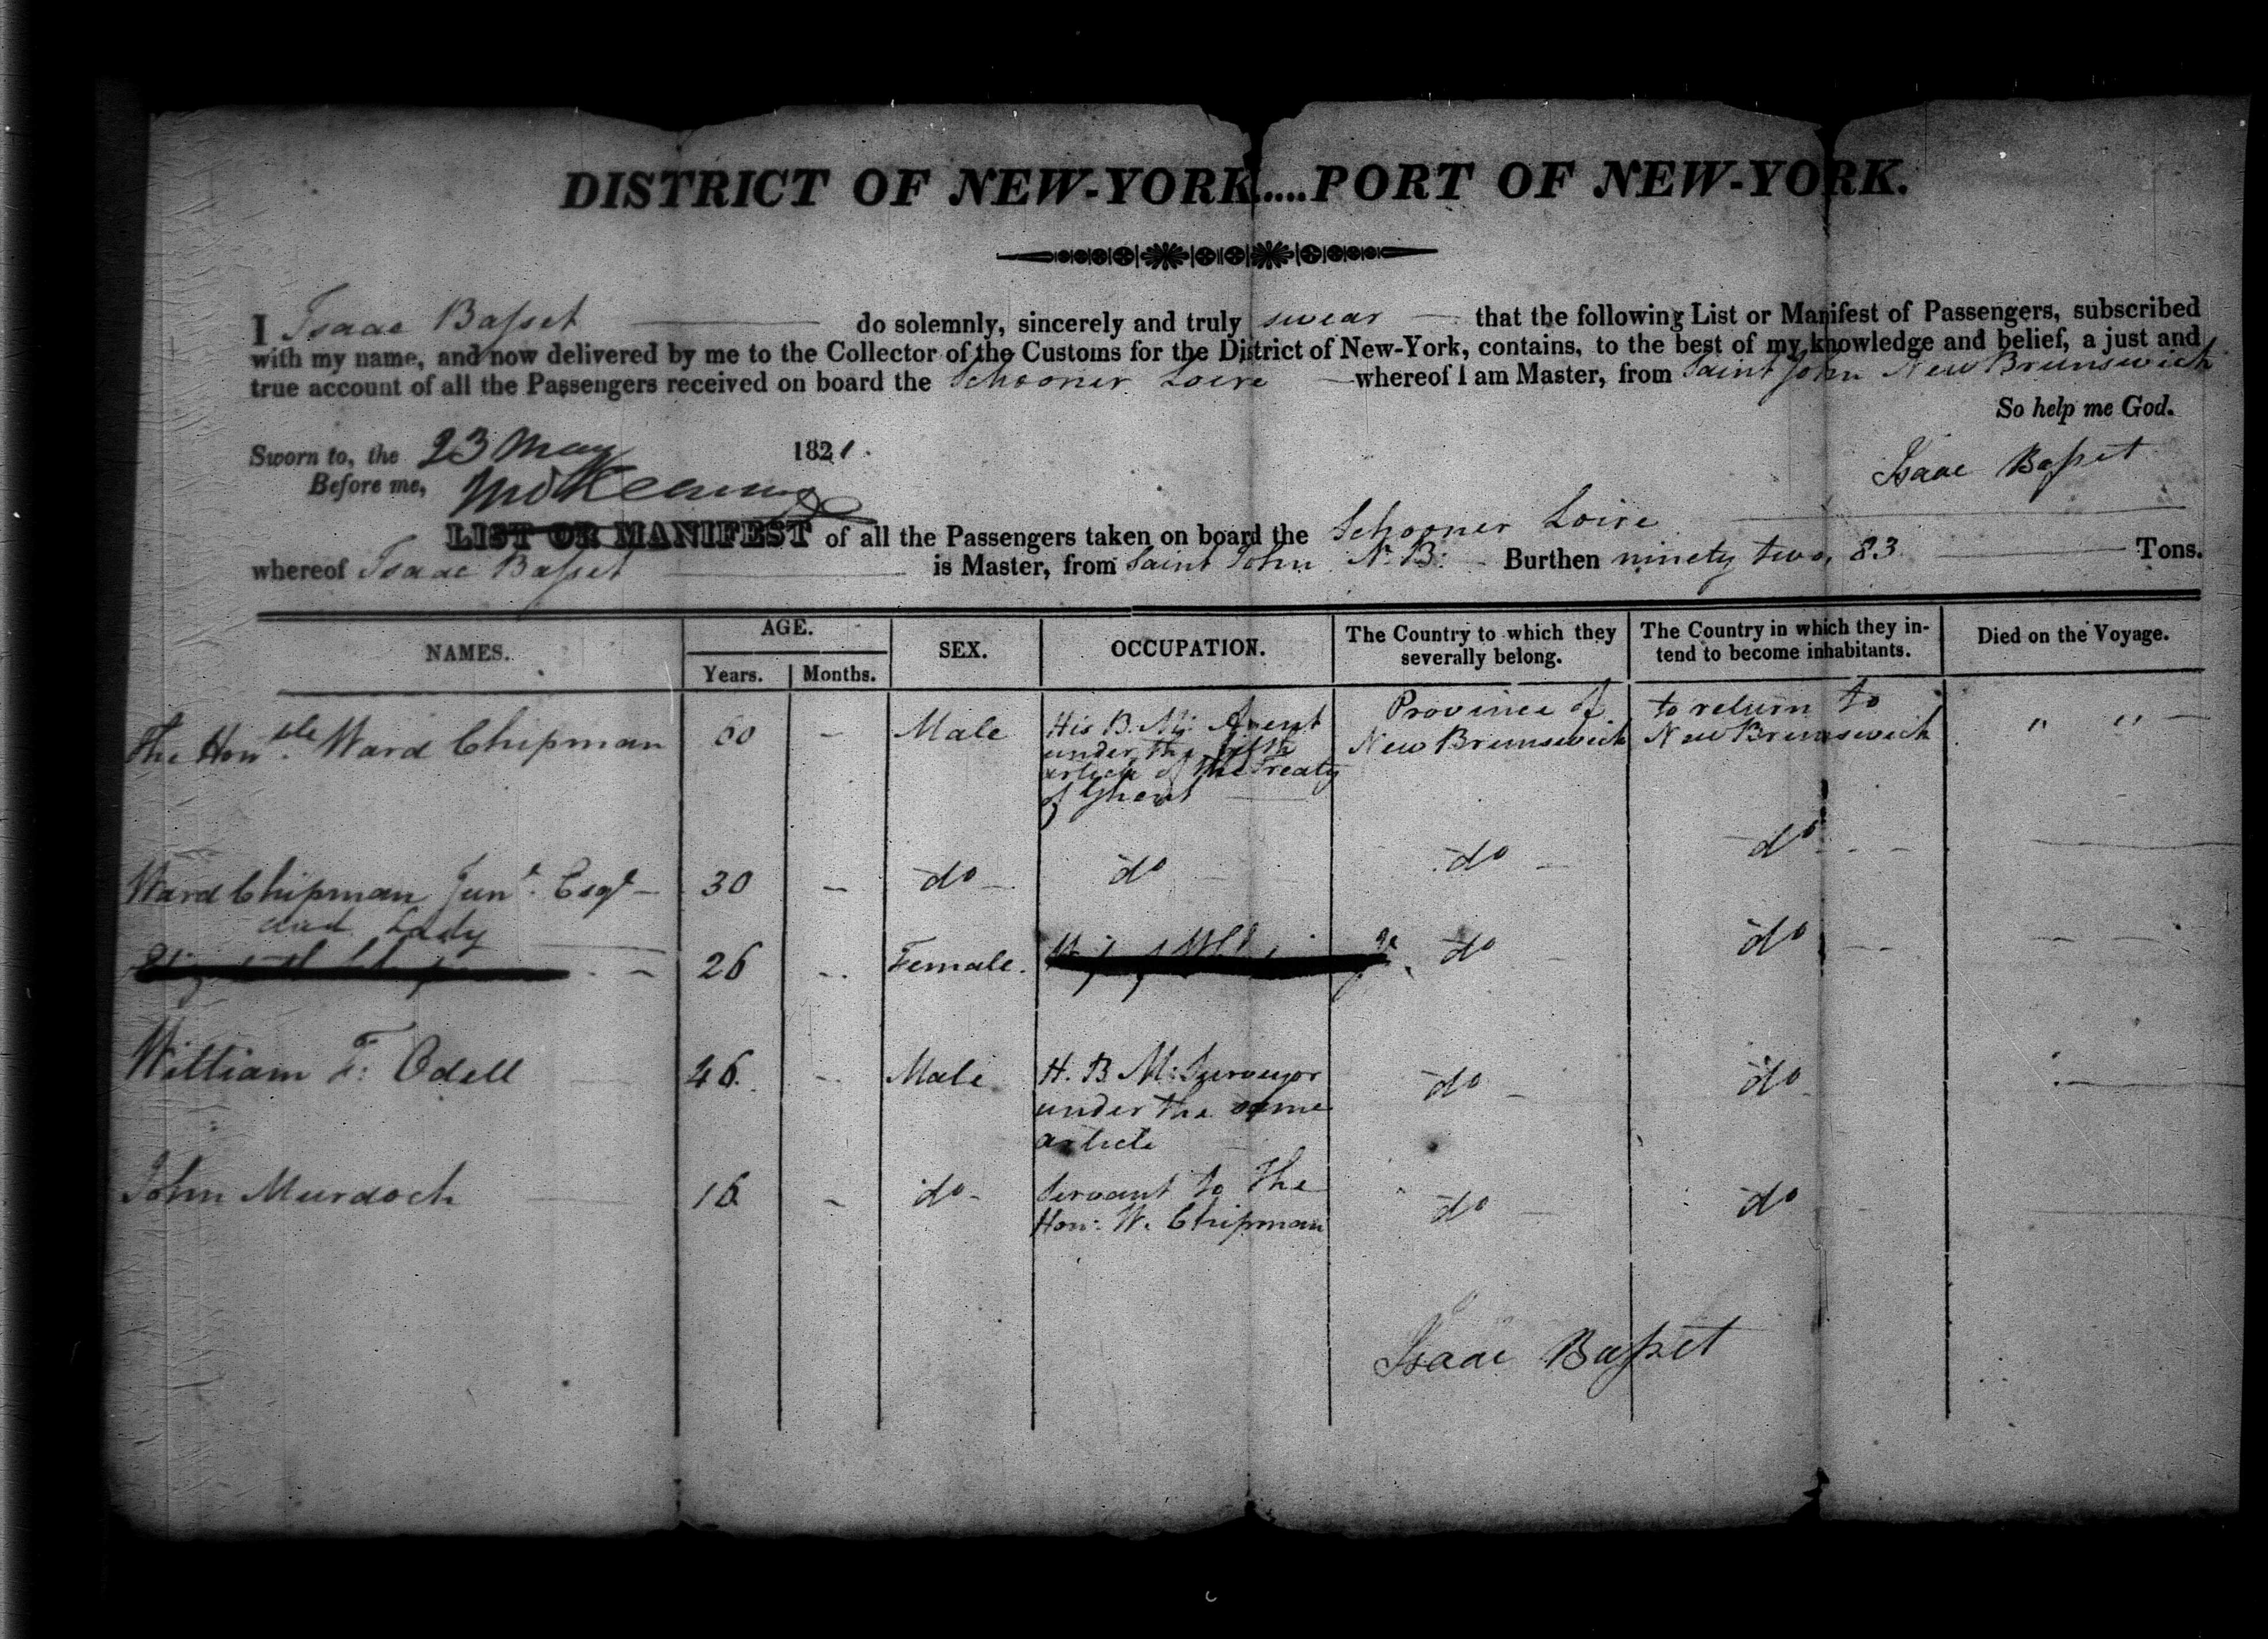 DISTRICT OF NEW-YORK.....PORT OF NEW-YORK.
I Isaac Basset do solemnly, sincerely and truly swear that the following List or Manifest of Passengers, subscribed
with my name, and now delivered by me to the Collector of the Customs for the District of New-York, contains, to the best of my knowledge and belief, a just and
true account of all the Passengers received on board the Schooner Loire whereof I am Master, from Saint John New Brunswick
So help me God.
Sworn to, the 23 May 1821.
Before me,
Isaac Basset
LIST OR MANIFEST of all the Passengers taken on board the Schooner Loire
whereof Isaac Basset is Master, from Saint John N. B: Burthen ninety two, 83 Tons.
NAMES. AGE. Years. Months. SEX. OCCUPATION. The Country to which they severally belong. The Country in which they intend to become inhabitants. Died on the Voyage.
The Honble. Ward Chipman 60 - Male His B. M: Agent under the fifth article of the Treaty of Ghent Province of New Brunswick to return to New Brunswick " "
Ward Chipman Junr. Esqr - 30 - do - do do - do - -
and Lady
26 - Female. do do - -
William F: Odell 46. - Male H. B. M: Surveyor under the same article do - do
John Murdoch 16 - do - Servant to the Hon: W. Chipman do do
Isaac Basset